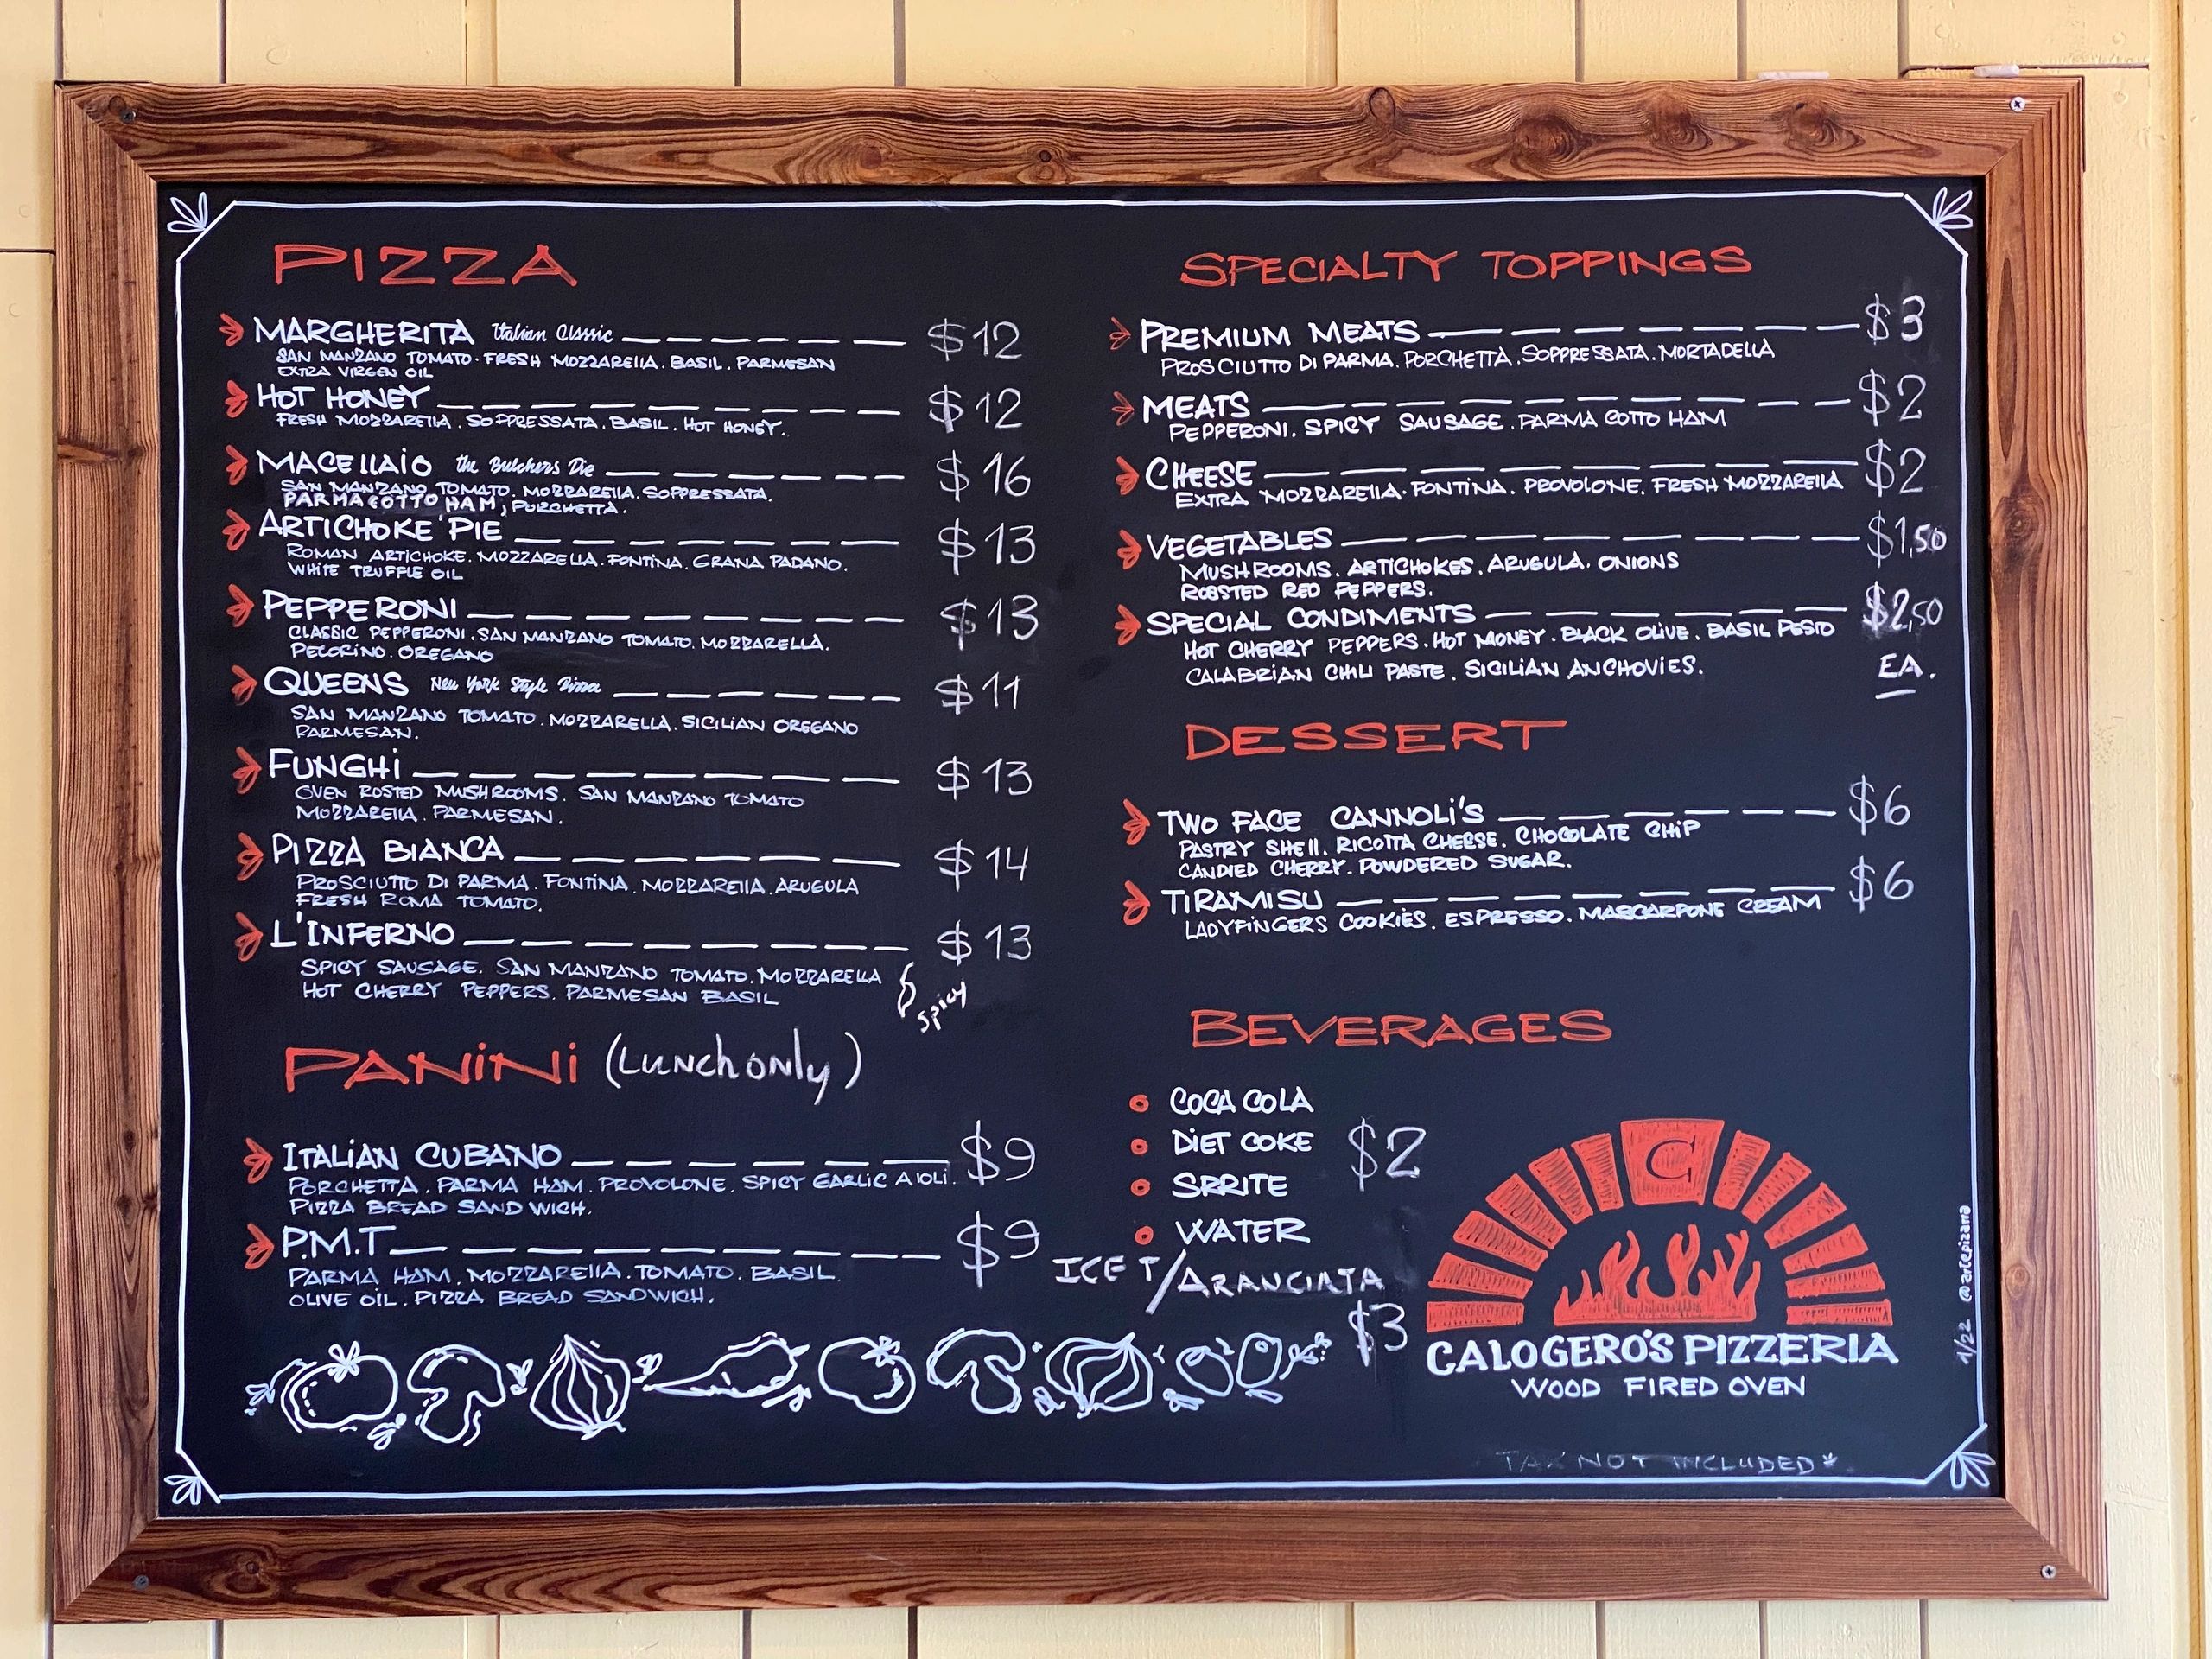 PIZZA
MARGHERITA Italian Classic $12
SAN MANZANO TOMATO. FRESH MOZZARELLA. BASIL. PARMESAN
EXTRA VIRGEN OIL
HOT HONEY $12
FRESH MOZZARELLA. SOPPRESSATA. BASIL. HOT HONEY.
MACELLAIO the Butchers Pie $16
SAN MANZANO TOMATO. MOZZARELLA. SOPPRESSATA.
PARMACOTTO HAM, PORCHETTA.
ARTICHOKE PIE $13
ROMAN ARTICHOKE. MOZZARELLA. FONTINA. GRANA PADANO.
WHITE TRUFFLE OIL
PEPPERONI $13
CLASSIC PEPPERONI. SAN MANZANO TOMATO. MOZZARELLA.
PECORINO. OREGANO
QUEENS New York Style Pizza $11
SAN MANZANO TOMATO. MOZZARELLA. SICILIAN OREGANO
PARMESAN.
FUNGHI $13
OVEN ROSTED MUSHROOMS. SAN MANZANO TOMATO
MOZZARELLA. PARMESAN.
PIZZA BIANCA $14
PROSCIUTTO DI PARMA. FONTINA. MOZZARELLA. ARUGULA
FRESH ROMA TOMATO.
L'INFERNO $13
SPICY SAUSAGE. SAN MANZANO TOMATO. MOZZARELLA
HOT CHERRY PEPPERS. PARMESAN BASIL
Spicy
PANINI (Lunch only)
ITALIAN CUBANO $9
PORCHETTA. PARMA HAM. PROVOLONE. SPICY GARLIC AIOLI.
PIZZA BREAD SANDWICH.
P.M.T $9
PARMA HAM. MOZZARELLA. TOMATO. BASIL.
OLIVE OIL. PIZZA BREAD SANDWICH.
SPECIALTY TOPPINGS
PREMIUM MEATS $3
PROSCIUTTO DI PARMA. PORCHETTA. SOPPRESSATA. MORTADELLA
MEATS $2
PEPPERONI. SPICY SAUSAGE. PARMA COTTO HAM
CHEESE $2
EXTRA MOZZARELLA. FONTINA. PROVOLONE. FRESH MOZZARELLA
VEGETABLES $1,50
MUSHROOMS. ARTICHOKES. ARUGULA. ONIONS
ROASTED RED PEPPERS.
SPECIAL CONDIMENTS $2,50
HOT CHERRY PEPPERS. HOT MONEY. BLACK OLIVE. BASIL PESTO
CALABRIAN CHILI PASTE. SICILIAN ANCHOVIES. EA.
DESSERT
TWO FACE CANNOLI'S $6
PASTRY SHELL. RICOTTA CHEESE. CHOCOLATE CHIP
CANDIED CHERRY. POWDERED SUGAR.
TIRAMISU $6
LADYFINGERS COOKIES. ESPRESSO. MASCARPONE CREAM
BEVERAGES
COCA COLA
DIET COKE $2
SPRITE
WATER
ICE T/ARANCIATA
$3
C
CALOGERO'S PIZZERIA
WOOD FIRED OVEN
TAX NOT INCLUDED*
1/22 @artepizarra